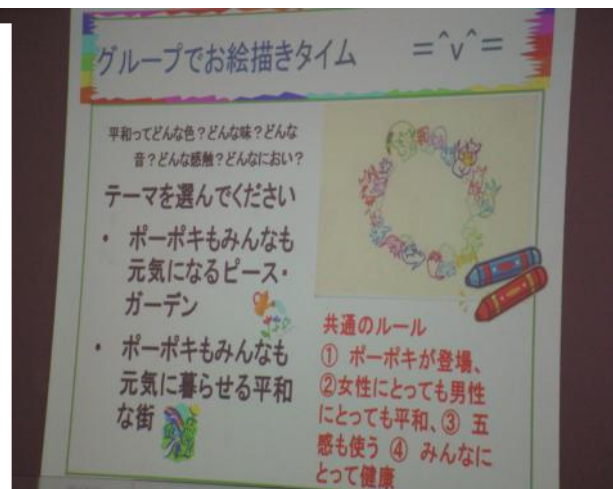 グループでお絵描きタイム　=^v^=
平和ってどんな色？どんな味？どんな
音？どんな感触？どんなにおい？
テーマを選んでください
・ ポーポキもみんなも
元気になるピース・
ガーデン
・ ポーポキもみんなも
元気に暮らせる平和
な街
共通のルール
① ポーポキが登場、
②女性にとっても男性
にとっても平和、③ 五
感も使う ④ みんなに
とって健康